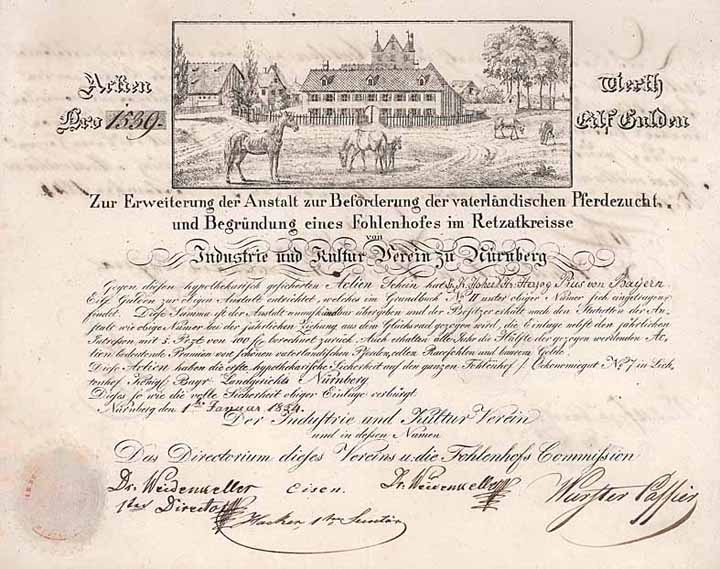 Actien
Nro 1539.
Werth
Eilf Gulden
Zur Erweiterung der Anstalt zur Beförderung der vaterländischen Pferdezucht
und Begründung eines Fohlenhofes im Retzatkreisse
von
Industrie und Kultur Verein zu Nürnberg
Gegen diesen hypothekarisch gesicherten Actien Schein hat Herzog Pius von Bayern
Eilf Gulden zur obigen Anstalt entrichtet, welches im Grundbuch No. II unter obiger Numer sich eingetragen
findet. Diese Summa ist der Anstalt unaufkündbar übergeben und der Besitzer erhält nach den Statutten der An-
stalt wie obige Numer bei der jährlichen Ziehung aus dem Glücksrad gezogen wird, die Einlage nebst den jährlichen
Intressen mit 3. Przt von 100 fl. berechnet zurück. Auch erhalten alle Jahr die Hälfte der gezogen werdenden Ac-
tien bedeutende Præmien von schönen vaterländischen Pferden, edlen Racefohlen und baarem Gelde.
Diese Actien haben die erste hypothekarische Sicherheit auf den ganzen Fohlenhof / Oekonomiegut No. 7 in Lich-
tenhof Königl. Bayr. Landgerichts Nürnberg.
Dieses so wie die volle Sicherheit obiger Einlage verbürgt
Nürnberg den 1ten Januar 1834.
Der Industrie und Kultur Verein
und in dessen Namen
Das Directorium dieses Vereins u. die Fohlenhofs Commission
Dr. Weidenkeller Eisen. Dr. Weidenkeller Wurster Cassier
1ter Director
Hacker 1ter Secretär